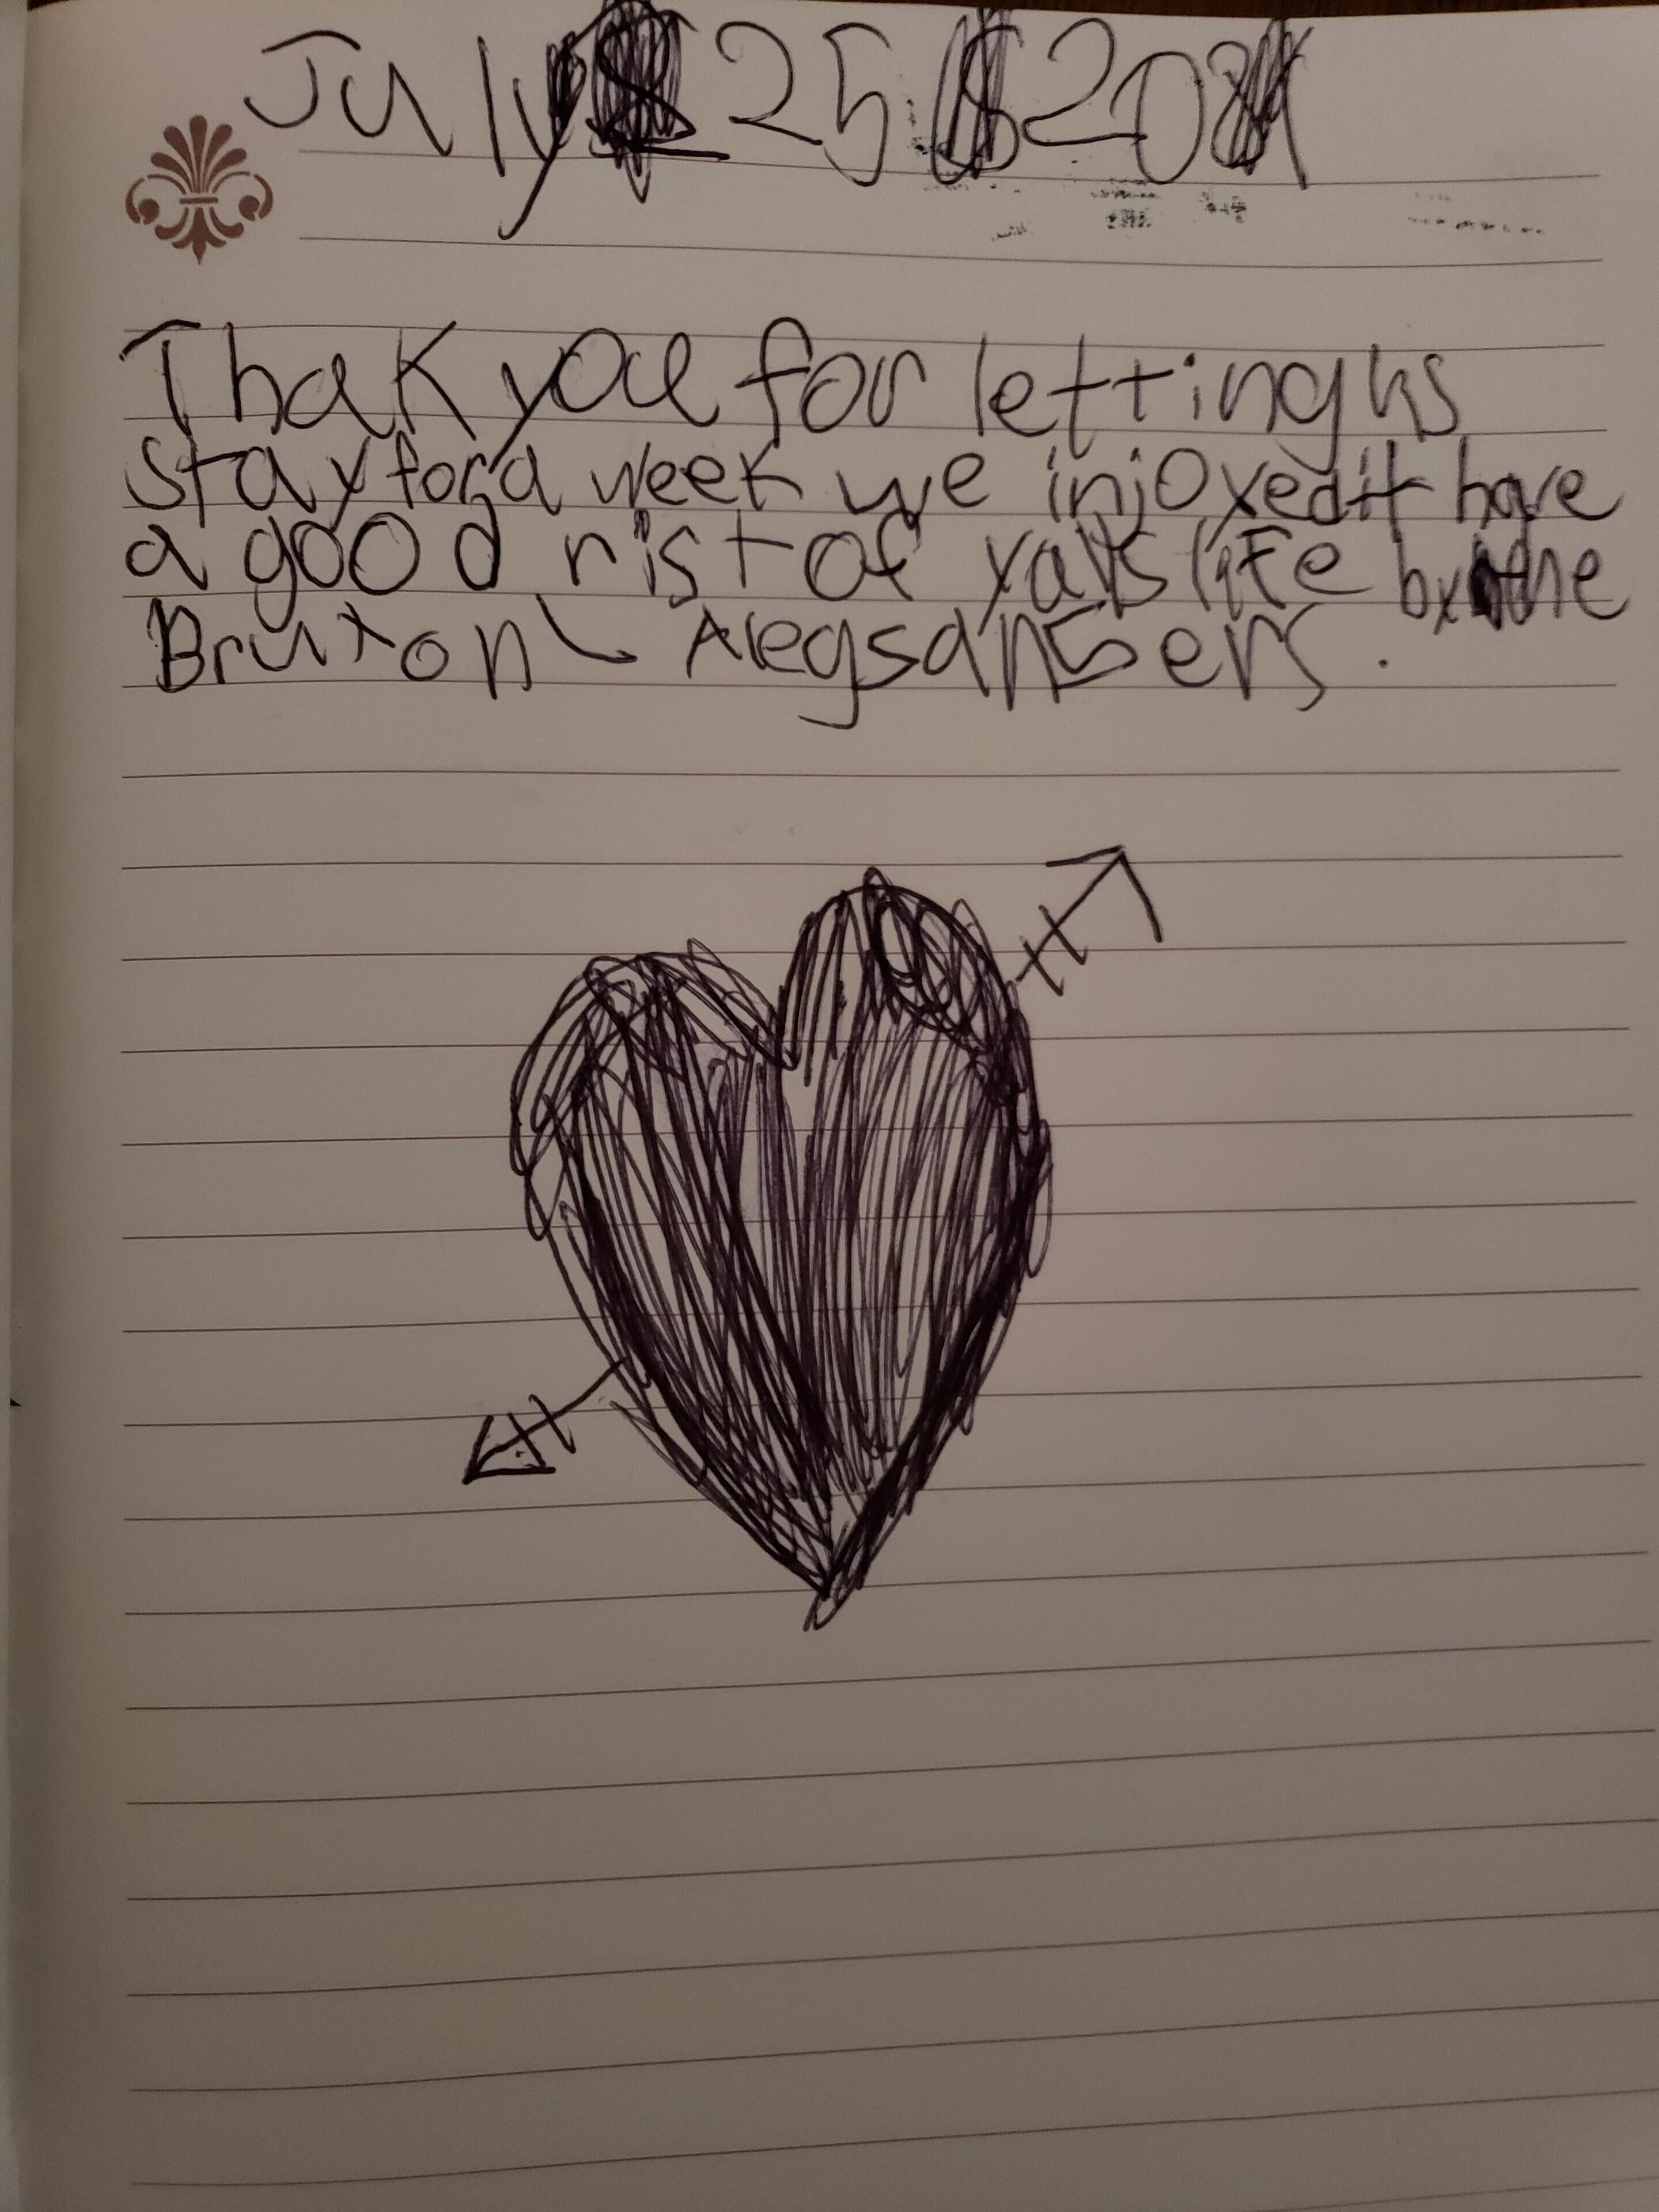 July 25 20
Thak you for letting us
stay for a week we injoyed it have
a good rist of yalls life by the
Bruton